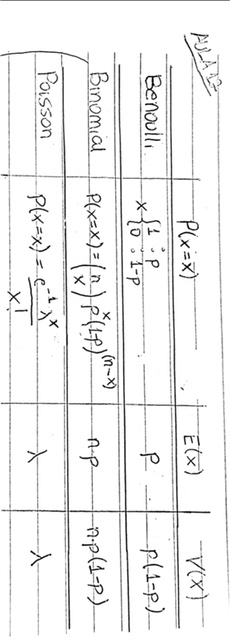 AULA 12
P(x=x) E(x) V(x)
Benoulli x { 1 : p p p(1-p)
0 : 1-p
Binomial P(x=x) = (n x) p^x (1-p)^(n-x) n.p n.p(1-p)
Poisson P(x=x) = e^-λ λ^x / x! λ λ